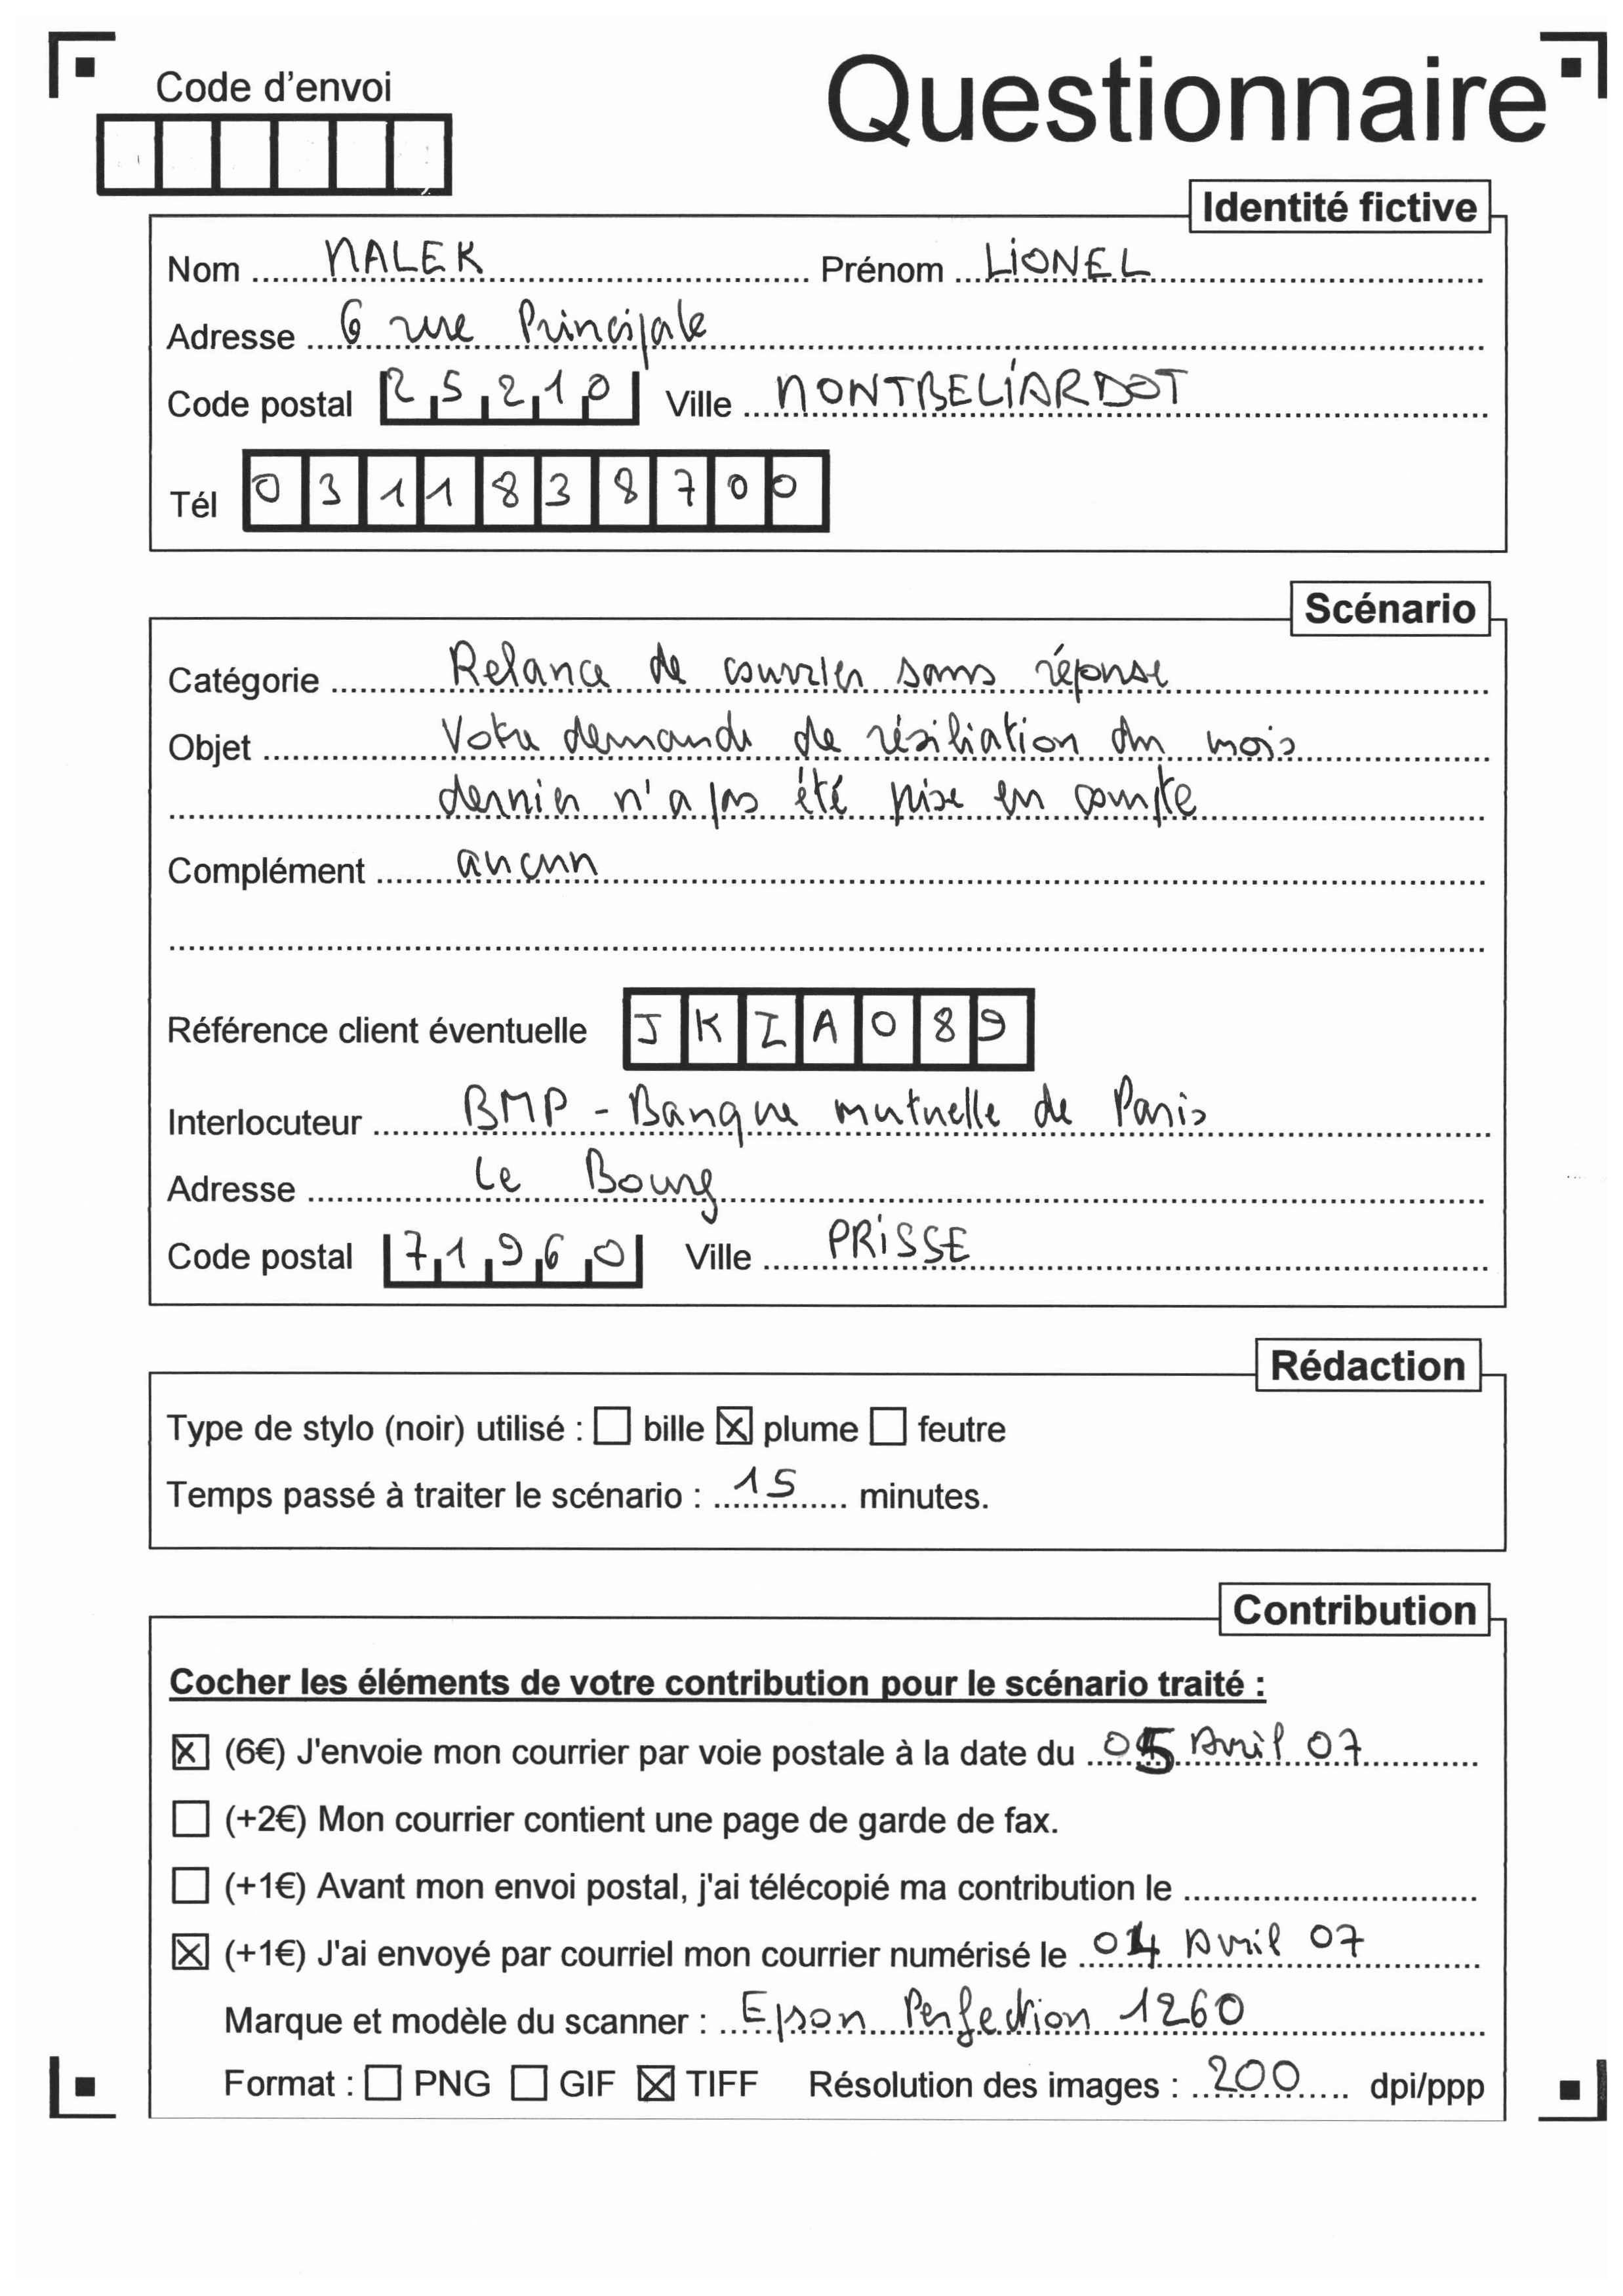 Code d'envoi
Questionnaire
Identité fictive
Nom MALEK Prénom LIONEL
Adresse 6 rue Principale
Code postal 25210 Ville MONTBELIARDOT
Tél 0311838700
Scénario
Catégorie Relance de courrier sans réponse
Objet Votre demande de résiliation du mois
dernier n'a pas été prise en compte
Complément aucun
Référence client éventuelle JKIA089
Interlocuteur BMP - Banque mutuelle de Paris
Adresse Le Bourg
Code postal 71960 Ville PRISSE
Rédaction
Type de stylo (noir) utilisé : ☐ bille ☒ plume ☐ feutre
Temps passé à traiter le scénario : 15 minutes.
Contribution
Cocher les éléments de votre contribution pour le scénario traité :
☒ (6€) J'envoie mon courrier par voie postale à la date du 05 Avril 07
☐ (+2€) Mon courrier contient une page de garde de fax.
☐ (+1€) Avant mon envoi postal, j'ai télécopié ma contribution le
☒ (+1€) J'ai envoyé par courriel mon courrier numérisé le 04 Avril 07
Marque et modèle du scanner : Epson Perfection 1260
Format : ☐ PNG ☐ GIF ☒ TIFF Résolution des images : 200 dpi/ppp